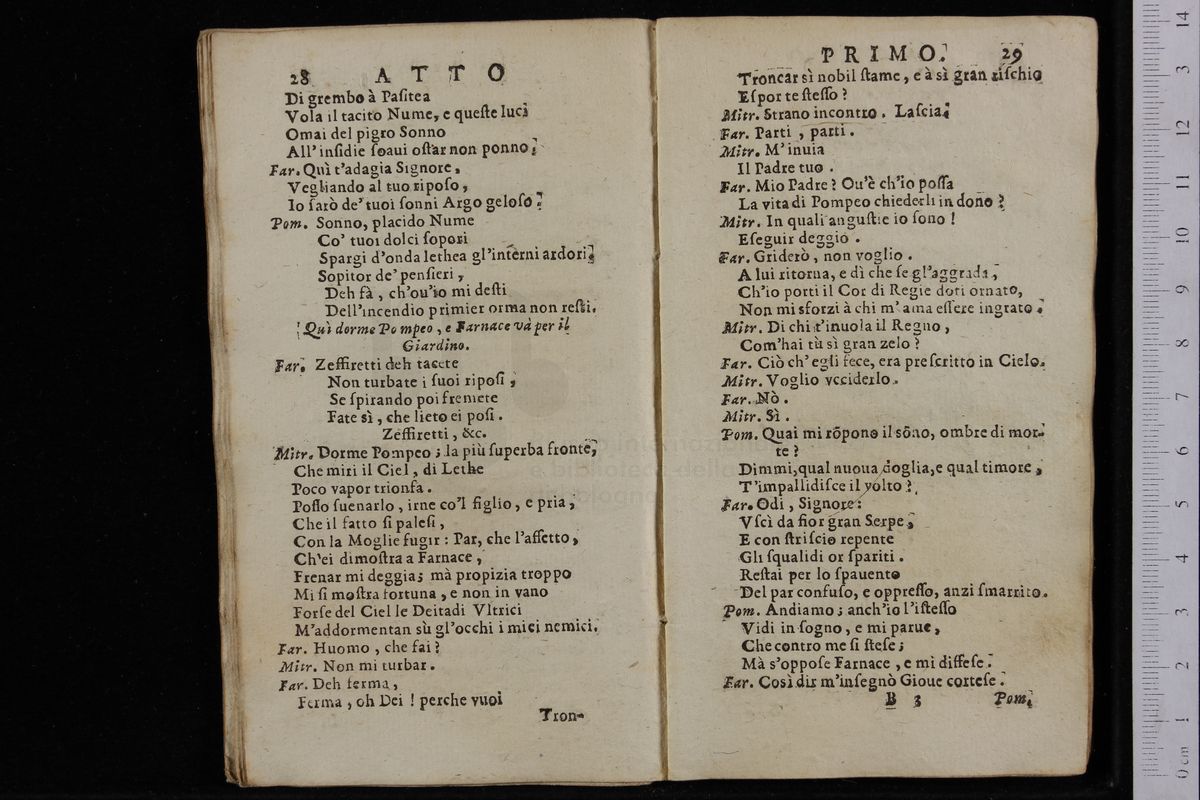 28 ATTO
Di grembo à Paſitea
Vola il tacito Nume, e queſte luci
Omai del pigro Sonno
All' inſidie ſoaui oſtar non ponno.
Far. Quì t'adagia Signore,
Vegliando al tuo ripoſo,
Io ſarò de' tuoi ſonni Argo geloſo.
Pom. Sonno, placido Nume
Co' tuoi dolci ſopori
Spargi d'onda lethea gl'interni ardori.
Sopitor de' penſieri,
Deh fà, ch'ou'io mi deſti
Dell'incendio primier orma non reſti.
Quì dorme Pompeo, e Farnace và per il
Giardino.
Far. Zeffiretti deh tacete
Non turbate i ſuoi ripoſi,
Se ſpirando poi fremete
Fate sì, che lieto ei poſi.
Zeffiretti, &c.
Mitr. Dorme Pompeo; la più ſuperba fronte,
Che miri il Ciel, di Lethe
Poco vapor trionfa.
Poſſo ſuenarlo, irne co'l figlio, e pria,
Che il fatto ſi paleſi,
Con la Moglie fugir: Par, che l'affetto,
Ch'ei dimoſtra a Farnace,
Frenar mi deggia; mà propizia troppo
Mi ſi moſtra fortuna, e non in vano
Forſe del Ciel le Deitadi Vltrici
M'addormentan sù gl'occhi i miei nemici.
Far. Huomo, che fai?
Mitr. Non mi turbar.
Far. Deh ferma,
Ferma, oh Dei! perche vuoi
Tron-
PRIMO. 29
Troncar sì nobil ſtame, e à sì gran riſchio
Eſpor te ſteſſo?
Mitr. Strano incontro. Laſcia.
Far. Parti, parti.
Mitr. M'inuia
Il Padre tuo.
Far. Mio Padre? Ou'è ch'io poſſa
La vita di Pompeo chiederli in dono?
Mitr. In quali anguſtie io ſono!
Eſeguir deggio.
Far. Griderò, non voglio.
A lui ritorna, e dì che ſe gl'aggrada,
Ch'io porti il Cor di Regie doti ornato,
Non mi sforzi à chi m'ama eſſere ingrato.
Mitr. Di chi t'inuola il Regno,
Com'hai tù sì gran zelo?
Far. Ciò ch'egli fece, era preſcritto in Cielo.
Mitr. Voglio vcciderlo.
Far. Nò.
Mitr. Sì.
Pom. Quai mi rõpono il sõno, ombre di mor-
te?
Dimmi, qual nuoua doglia, e qual timore,
T'impallidiſce il volto?
Far. Odi, Signore:
Vſcì da fior gran Serpe,
E con ſtriſcio repente
Gli ſqualidi or ſpariti.
Reſtai per lo ſpauento
Del par confuſo, e oppreſſo, anzi ſmarrito.
Pom. Andiamo; anch'io l'iſteſſo
Vidi in ſogno, e mi parue,
Che contro me ſi ſteſe;
Mà s'oppoſe Farnace, e mi diffeſe.
Far. Così dir m'inſegnò Gioue corteſe.
B 3 Pom.